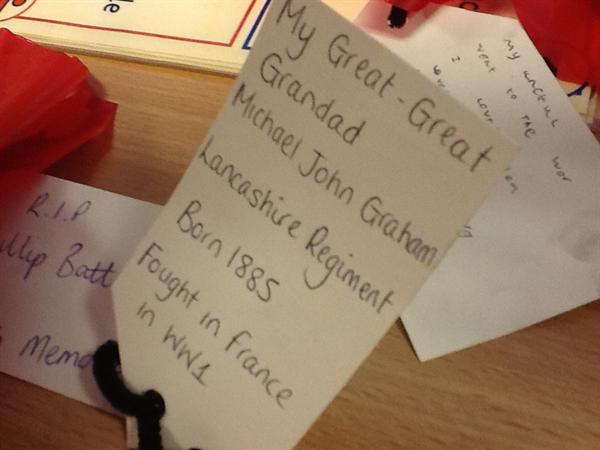 My Great-Great
Grandad
Michael John Graham
Lancashire Regiment
Born 1885
Fought in France
in WW1
R.I.P
Batt
Memo
my
went to the wor
I
de